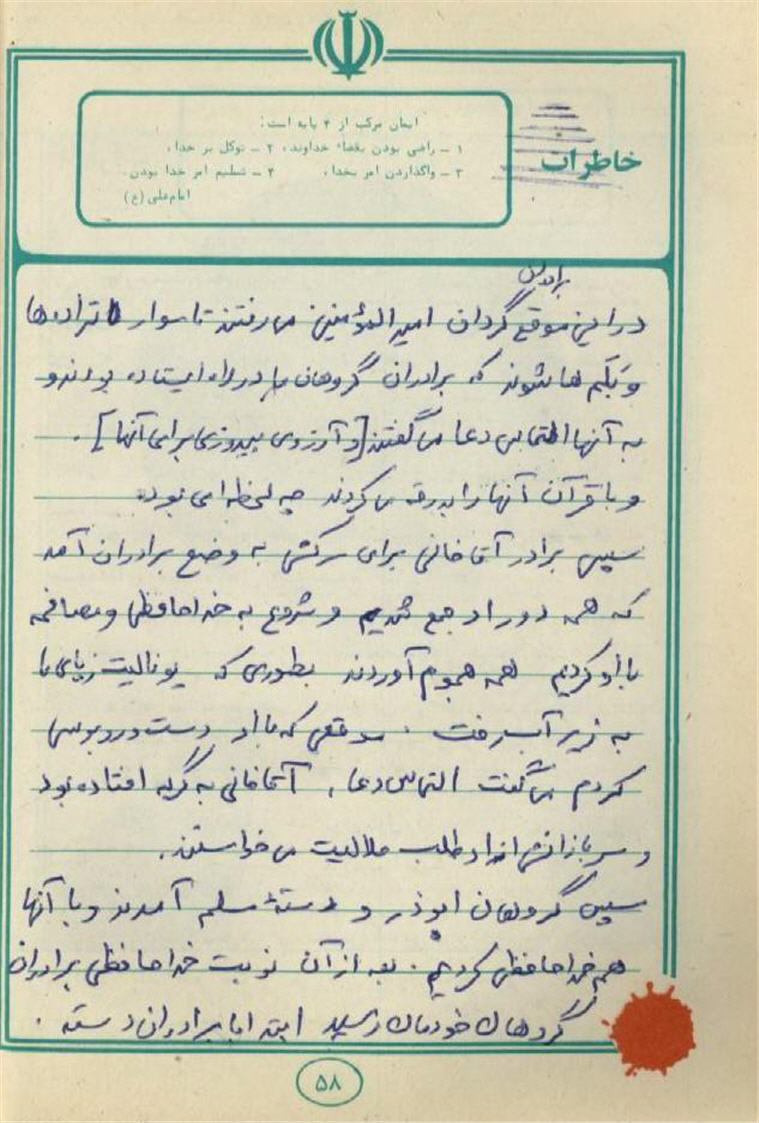 ایمان مرکب از ۴ پایه است:
۱ ـ راضی بودن بقضاء خداوند، ۲ ـ توکل بر خدا،
۳ ـ واگذاردن امر بخدا، ۴ ـ تسلیم امر خدا بودن.
امام‌علی (ع)
خاطرات
برادران
در این موقع گردان امیرالمؤمنین می رفتند تا سوار
که برادران گروهان ما در راه ایستاده بودند و
به آنها التماس دعا می گفتند [و آرزوی پیروزی برای آنها].
و با قرآن آنها را بدرقه می کردند چه لحظه ای بود.
سپس برادر آقاخانی برای سرکشی به وضع برادران آمد
که همه دور او جمع شدیم و شروع به خداحافظی و مصافحه
با او کردیم همه هجوم آوردند بطوری که
به زیر آب رفت . موقعی که با او دست و روبوسی
کردم می گفت التماس دعا ، آقاخانی به گریه افتاده بود
و سربازانش از او طلب حلالیت می خواستند.
سپس گروهان ابوذر و دستهٔ مسلم آمدند و با آنها
هم خداحافظی کردیم . بعد از آن نوبت خداحافظی برادران
گروهان خودمان رسید ابتدا با برادران دسته .
۵۸